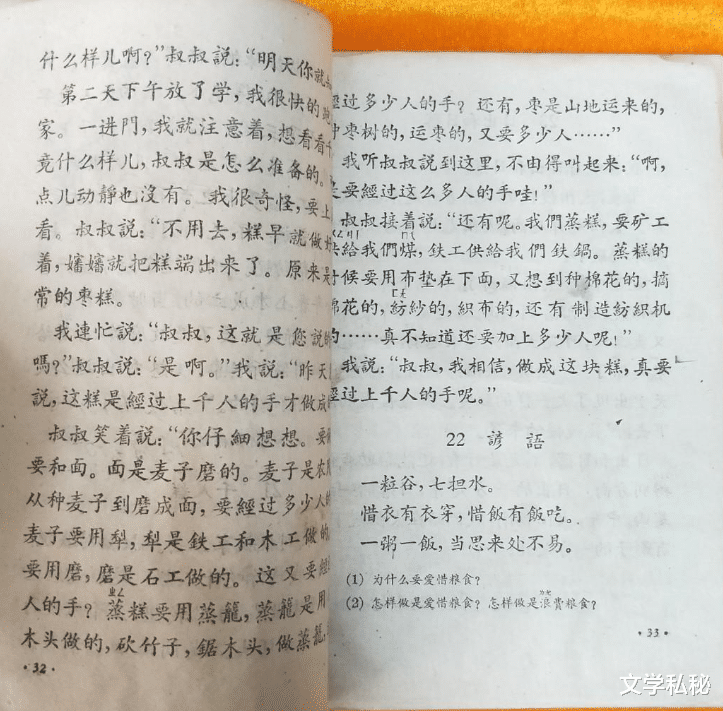 什么样儿啊？”叔叔説：“明天你就
第二天下午放了学，我很快的
家。一进門，我就注意着，想看看
竟什么样儿，叔叔是怎么准备的。
点儿动靜也沒有。我很奇怪，要上
看。叔叔説：“不用去，糕早就做
着，嬸嬸就把糕端出来了。原来是
常的枣糕。
我連忙説：“叔叔，这就是您説
嗎？”叔叔説：“是啊。”我説：“昨天
説，这糕是經过上千人的手才做成
叔叔笑着説：“你仔細想想。要
要和面。面是麦子磨的。麦子是农
从种麦子到磨成面，要經过多少人的
麦子要用犁，犁是鉄工和木工做的
要用磨，磨是石工做的。这又要經
ㄓㄥ
人的手？蒸糕要用蒸籠，蒸籠是用
木头做的，砍竹子，鋸木头，做蒸籠，
·32·
經过多少人的手？还有，枣是山地运来的，
种枣树的，运枣的，又要多少人……”
我听叔叔説到这里，不由得叫起来：“啊，
是要經过这么多人的手哇！”
叔叔接着説：“还有呢。我們蒸糕，要矿工
供給我們煤，鉄工供給我們鉄鍋。蒸糕的
时候要用布垫在下面，又想到种棉花的，摘
棉花的，紡紗的，织布的，还有制造紡织机
的……真不知道还要加上多少人呢！”
我説：“叔叔，我相信，做成这块糕，真要
經过上千人的手呢。”
22 諺語
一粒谷，七担水。
惜衣有衣穿，惜飯有飯吃。
一粥一飯，当思来处不易。
(1) 为什么要爱惜粮食？
(2) 怎样做是爱惜粮食？怎样做是浪費粮食？
·33·
文学私秘